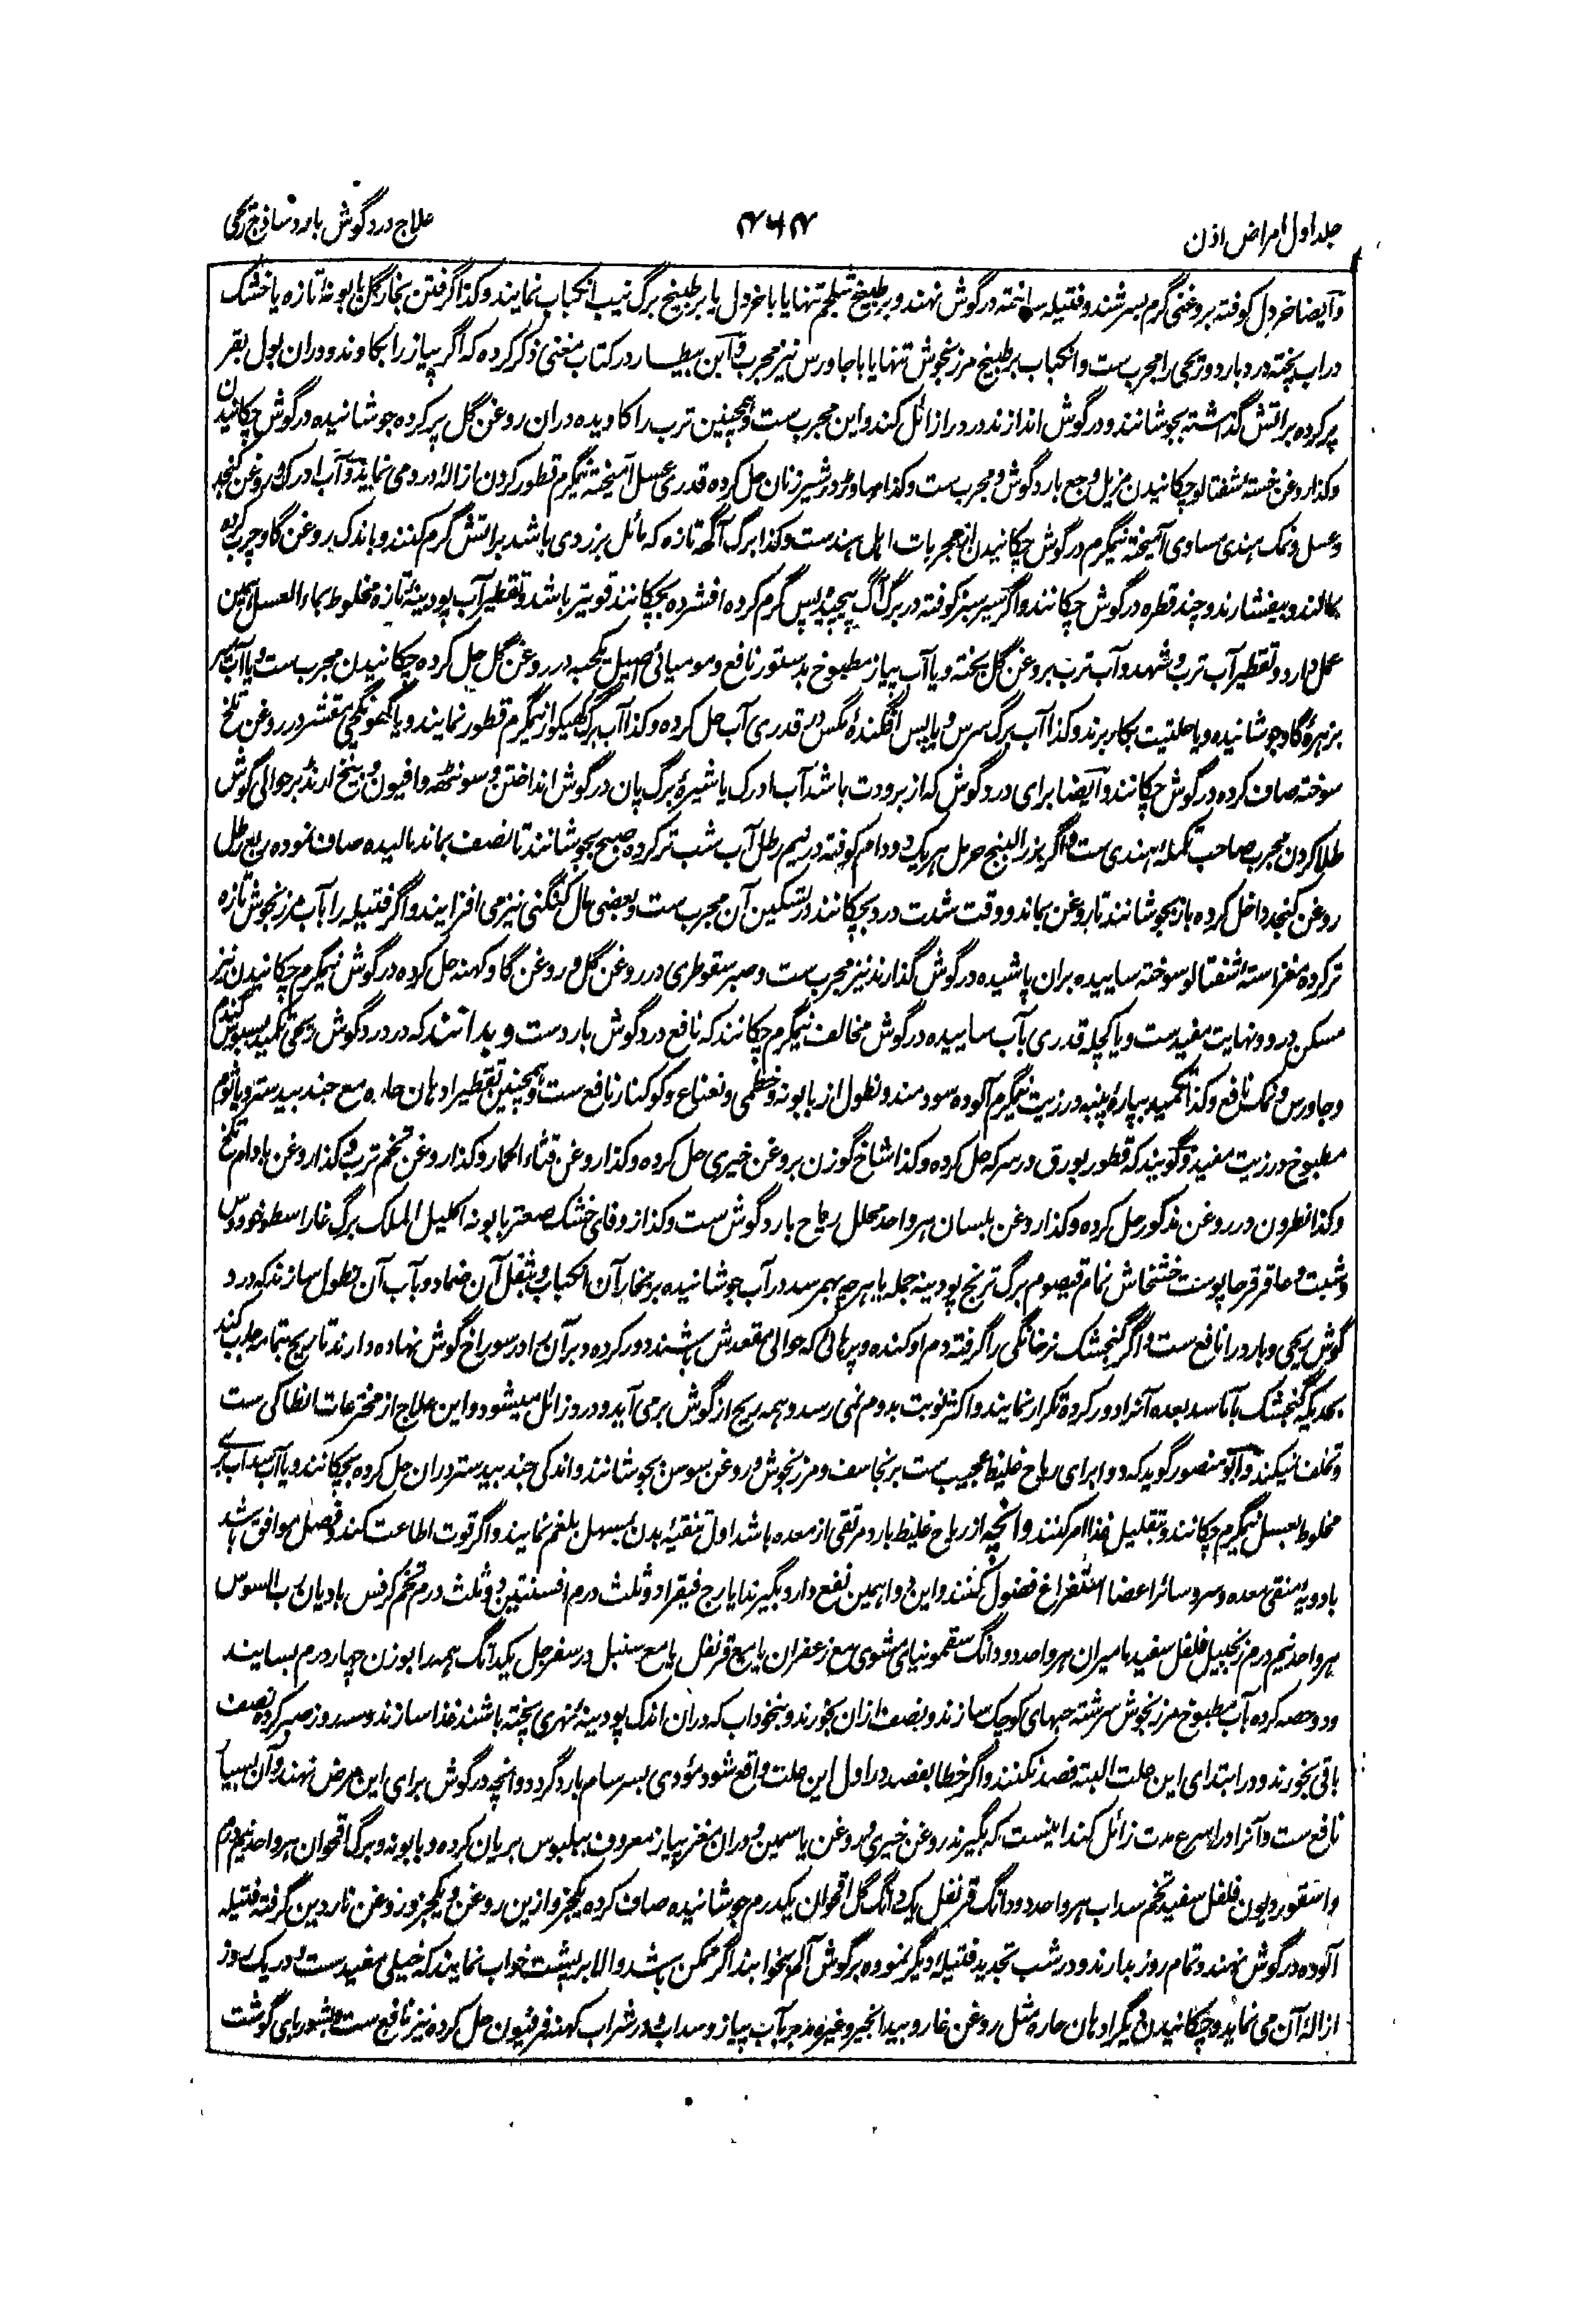 جلد اول امراض اذن
علاج درد گوش بارد ساذج ریحی
و ایضا خردل کوفته بروغنی گرم بسرشند و فتیله ساخته در گوش نهند و بر طبیخ شلجم تنها یا با خردل یا بر طبیخ برگ نیب انکباب نمایند و کذا گرفتن بخار گل بابونه تازه یا خشک
در آب پخته درد بارد و ریحی را مجرب ست و انکباب بر طبیخ مرزنجوش تنها یا با جاورس نیز مجرب و ابن بیطار در کتاب مغنی ذکر کرده که اگر پیاز را بکاوند و دران بول بقر
پر کرده بر آتش گذاشته بجوشانند و در گوش اندازند درد را زائل کند و این مجرب ست و همچنین ترب را کاویده دران روغن گل پر کرده جوشانیده در گوش چکانیدن
و کذا روغن خسته شفتالو چکانیدن مزیل وجع بارد گوش و مجرب ست و کذا در شیر زنان حل کرده قدری عسل آمیخته نیمگرم قطور کردن ازاله درد می نماید و آب ادرک و روغن کنجد
و عسل و نمک هندی مساوی آمیخته نیمگرم در گوش چکانیدن از مجربات اهل هندست و کذا برگ آگهه تازه که مائل بزردی باشد بر آتش گرم کنند و باندک روغن گاو چرب کرده
بمالند و بیفشارند و چند قطره در گوش چکانند و اگر سیر سبز کوفته در برگ آگ پیچیده پس گرم کرده افشرده بچکانند قوی‌تر باشد و تقطیر آب پودینه تازه مخلوط بماء العسل همین
عمل دارد و تقطیر آب ترب و شهد و آب ترب بروغن گل پخته و یا آب پیاز مطبوخ بدستور نافع و مومیائی اصیل یکحبه در روغن گل حل کرده چکانیدن مجرب ست و یا آب
بزهره گاو جوشانیده و یا حلتیت بکار برند و کذا آب برگ سرس و یا پس افگنده مگس در قدری آب حل کرده و کذا آب برگ گهیکوار نیمگرم قطور نمایند و یا گهونگچی مقشر در روغن تلخ
سوخته صاف کرده در گوش چکانند و ایضا برای درد گوش که از برودت باشد آب ادرک یا شیره برگ پان در گوش انداختن و سونٹهه و افیون و بیخ ارنڈ بر حوالی گوش
طلا کردن مجرب صاحب تکمله هندی ست و اگر بزر البنج حرمل هر یک دو دام کوفته در نیم رطل آب شب تر کرده صبح بجوشانند تا نصف بماند مالیده صاف نموده ربع رطل
روغن کنجد داخل کرده باز بجوشانند تا روغن بماند و وقت شدت درد بچکانند در تسکین آن مجرب ست و بعضی مال کنگنی نیز می افزایند و اگر فتیله را بآب مرزنجوش تازه
تر کرده مغز استه شفتالو سوخته ساییده بران پاشیده در گوش گذارند نیز مجرب ست و صبر سقوطری در روغن گل و روغن گاو کهنه حل کرده در گوش نیمگرم چکانیدن نیز
مسکن درد و نهایت مفیدست و یا کچله قدری بآب ساییده در گوش مخالف نیمگرم چکانند که نافع درد گوش باردست و بدانند که در درد گوش ریحی تکمید بسبوس گندم
و جاورس و نمک نافع و کذا تکمید بپاره پنبه در زیت نیمگرم آلوده سودمند و نطول از بابونه و خطمی و نعناع و کوکنار نافع ست و همچنین تقطیر ادهان حاره مع جندبیدستر و یا ثوم
مطبوخ در زیت مفید و گویند که قطور بورق در سرکه حل کرده و کذا شاخ گوزن بروغن خیری حل کرده و کذا روغن قثاء الحمار و کذا روغن تخم ترب و کذا روغن بادام تلخ
و کذا نطرون در روغن مذکور حل کرده و کذا روغن بلسان هر واحد محلل ریاح بارد گوش ست و کذا زوفای خشک صعتر بابونه اکلیل الملک برگ غار اسطوخودوس
و شبت و عاقرقرحا پوست خشخاش نمام قیصوم برگ ترنج پودینه جمله یا هر چه بهم رسد در آب جوشانیده بر بخار آن انکباب و بثفل آن ضماد و بآب آن نطول سازند که درد
گوش ریحی و بارد را نافع ست و اگر گنجشک نر خانگی را گرفته دم او کنده و پرهائی که حوالی مقعدش باشند دور کرده و برآن در سوراخ گوش نهاده دارند تا ریح بتمامه جذب کند
بحدیکه گنجشک بآماسد بعده آنرا دور کرده تکرار نمایند و اکثر نوبت بدوم نمی رسد و همه ریح از گوش برمی آید و درد زائل میشود و این علاج از مخترعات انطاکی ست
و تخلف نمیکند و ابو منصور گوید که دوا برای ریاح غلیظ عجیب ست برنجاسف و مرزنجوش و روغن سوسن بجوشانند و اندکی جندبیدستر دران حل کرده بچکانند و یا آب سداب
مخلوط بعسل نیمگرم چکانند و بتقلیل غذا امر کنند و آنچه از ریاح غلیظ بارد مرتقی از معده باشد اول تنقیه بدن بمسهل بلغم نمایند و اگر قوت اطاعت کند و فصل موافق باشد
بادویه منقی معده و سر و سائر اعضا استفراغ فضول کنند و این دوا همین نفع دارد بگیرند ایارج فیقرا دو ثلث درم افسنتین دو ثلث درم تخم کرفس بادیان رب السوس
هر واحد نیم درم زنجبیل فلفل سفید مامیران هر واحد دو دانگ سقمونیای مشوی مع زعفران یا مع قرنفل یا مع سنبل در سفرجل یکدانگ همه را بوزن چهار درم بسایند
و دو حصه کرده بآب مطبوخ مرزنجوش سرشته حبهای کوچک سازند و نصف ازان بخورند و بنخوداب که دران اندک پودینه نهری پخته باشند غذا سازند و سه روز صبر کرده نصف
باقی بخورند و در ابتدای این علت البته فصد نکنند و اگر خطا بفصد در اول این علت واقع شود مؤدی بسرسام بارد گردد و آنچه در گوش برای این مرض نهند و آن بسیار
نافع ست و آنرا در اسرع مدت زائل کند اینست که بگیرند روغن خیری و روغن یاسمین و دران مغز پیاز معروف ببلبوس بریان کرده و بابونه و برگ اقحوان هر واحد نیم درم
و اسقوردیون فلفل سفید تخم سداب هر واحد دو دانگ قرنفل یک دانگ گل اقحوان یکدرم جوشانیده صاف کرده یکجزو ازین روغن و یکجزو روغن ناردین گرفته فتیله
آلوده در گوش نهند و تمام روز بدارند و در شب تجدید فتیله دیگر نموده بر گوش الم بخوابند اگر ممکن باشد والا بر پشت خواب نمایند که خیلی مفید ست و در یک روز
ازاله آن می نماید و چکانیدن دیگر ادهان حاره مثل روغن غار و بیدانجیر و غیره مدبر بآب پیاز و سداب و در شراب کهنه فرفیون حل کرده نیز نافع ست و بشوربای گوشت